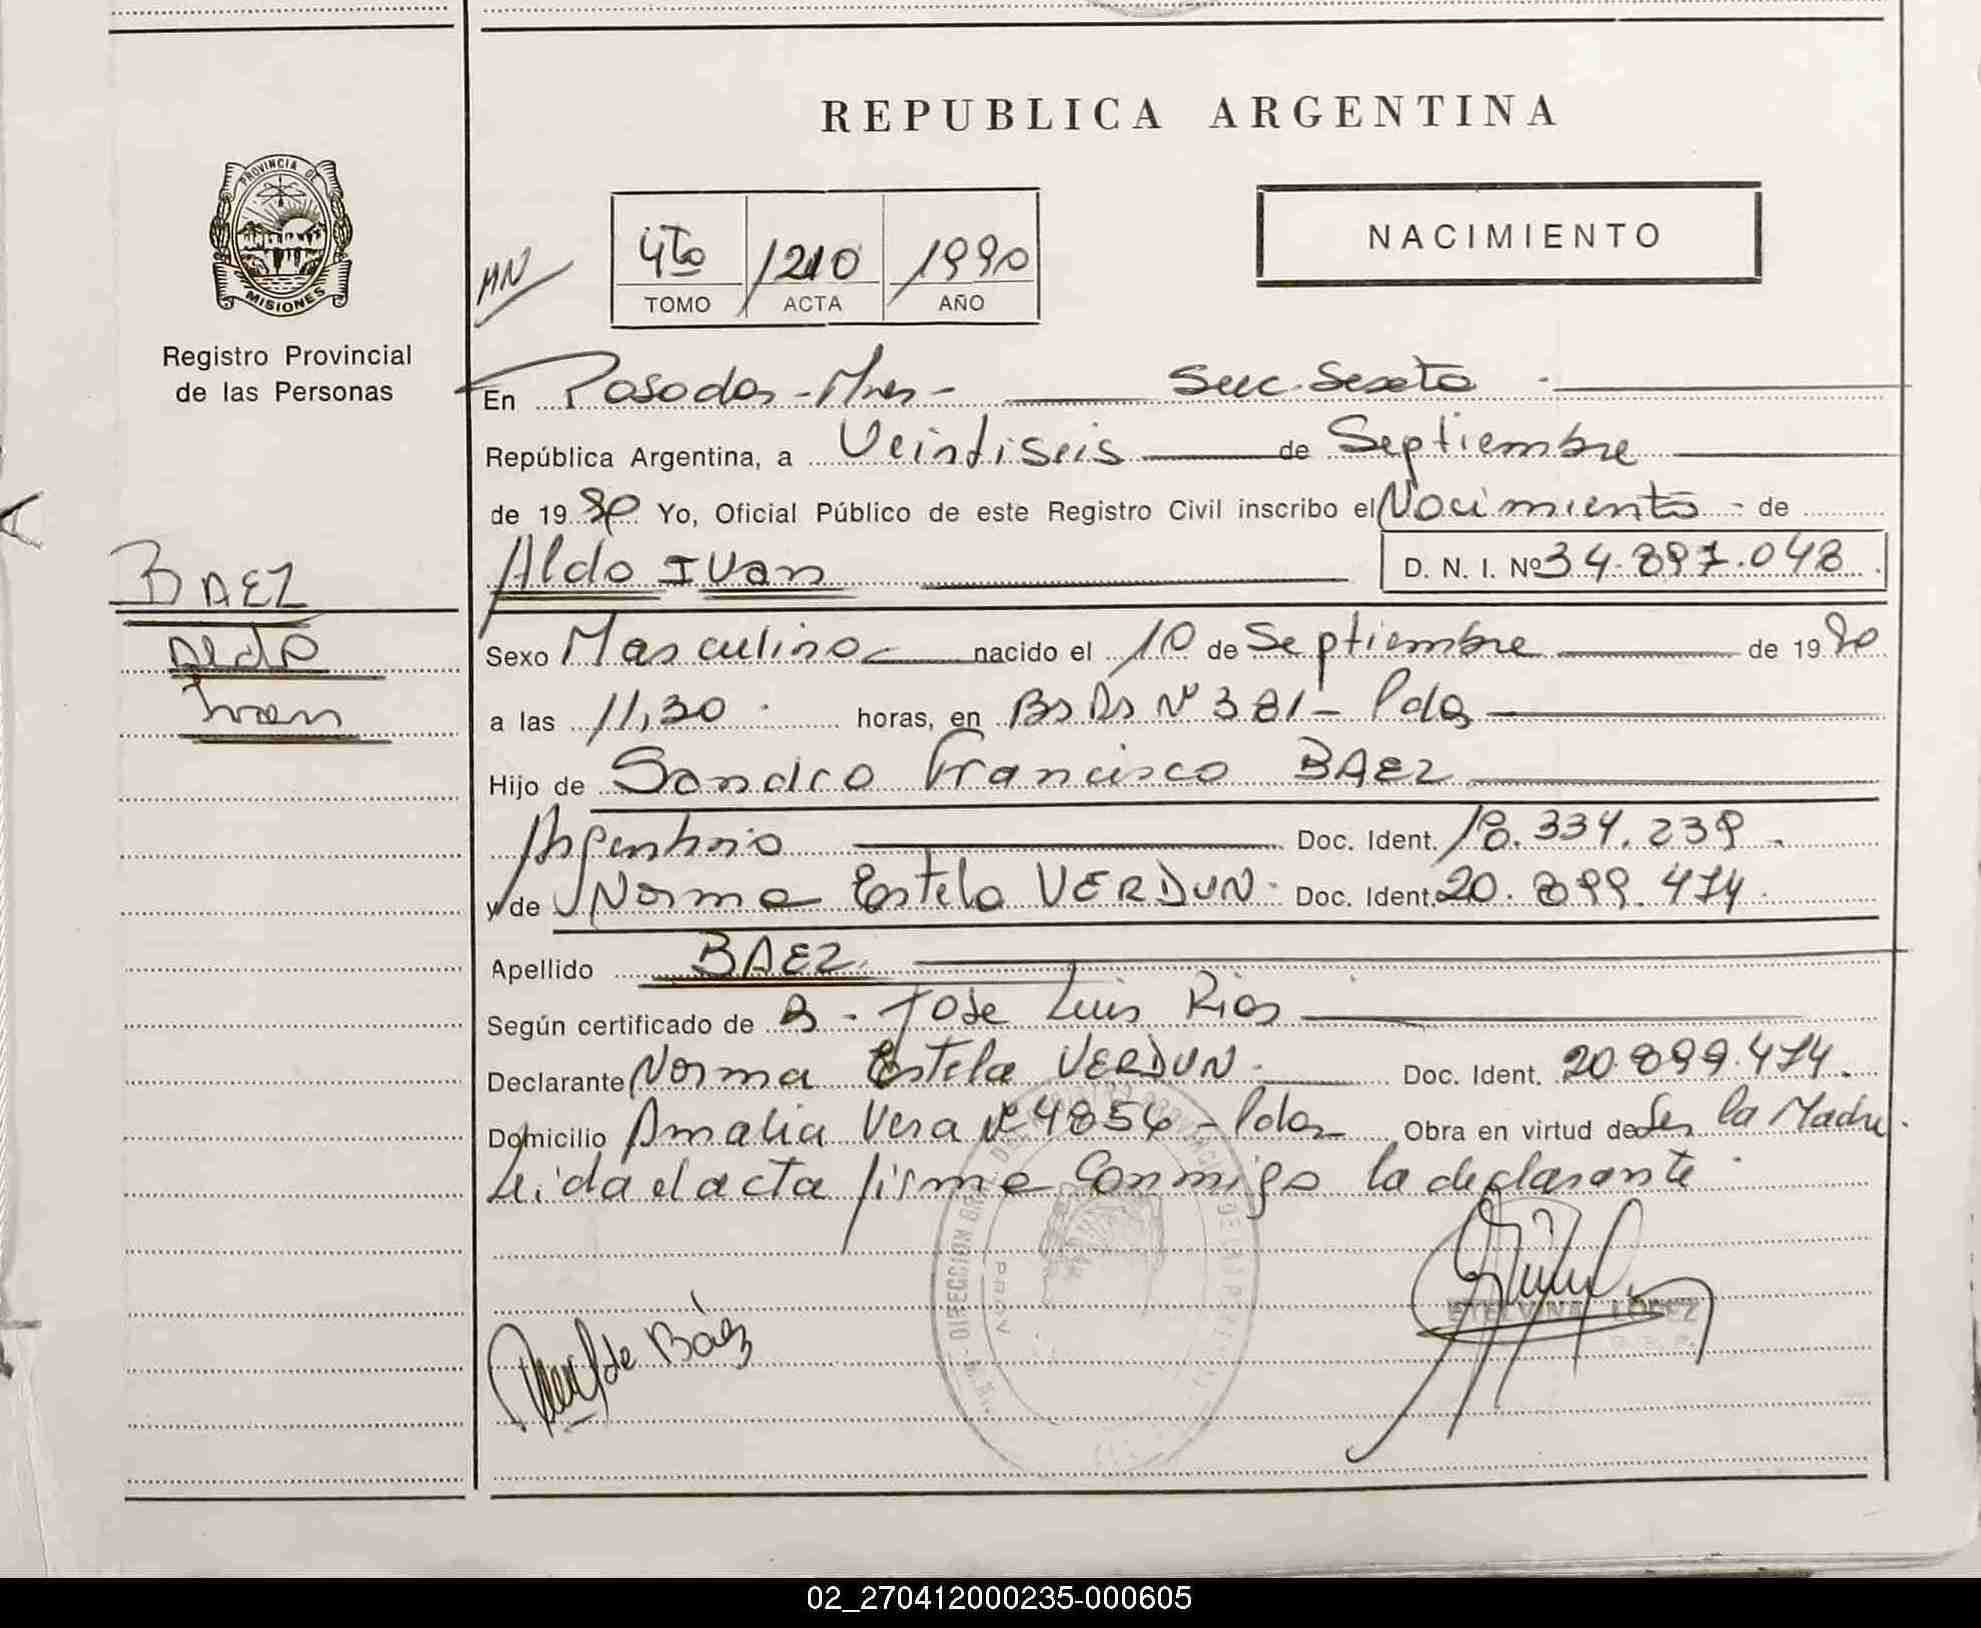 REPUBLICA ARGENTINA
PROVINCIA DE
MISIONES
Registro Provincial
de las Personas
NACIMIENTO
4to 1210 1990
TOMO ACTA AÑO
En Posadas - Mnes - Secc. Sexta -
República Argentina, a Veintiseis de Septiembre
de 1990 Yo, Oficial Público de este Registro Civil inscribo el Nacimiento - de
Aldo Ivan D. N. I. Nº 34.897.048
BAEZ
Aldo
Ivan
Sexo Masculino nacido el 10 de Septiembre de 1990
a las 11,30 horas, en Bs As Nº 381 - Pdas
Hijo de Sandro Francisco BAEZ
Argentino Doc. Ident. 18.334.239
y de Norma Estela VERDUN Doc. Ident. 20.899.474
Apellido BAEZ
Según certificado de Jose Luis Rios
Declarante Norma Estela VERDUN Doc. Ident. 20.899.474
Domicilio Amalia Vera Nº 4854 - Pdas Obra en virtud de Ser la Madre
Leida el acta firma conmigo la declarante
de Báez
ETELVINA LOPEZ
02_270412000235-000605